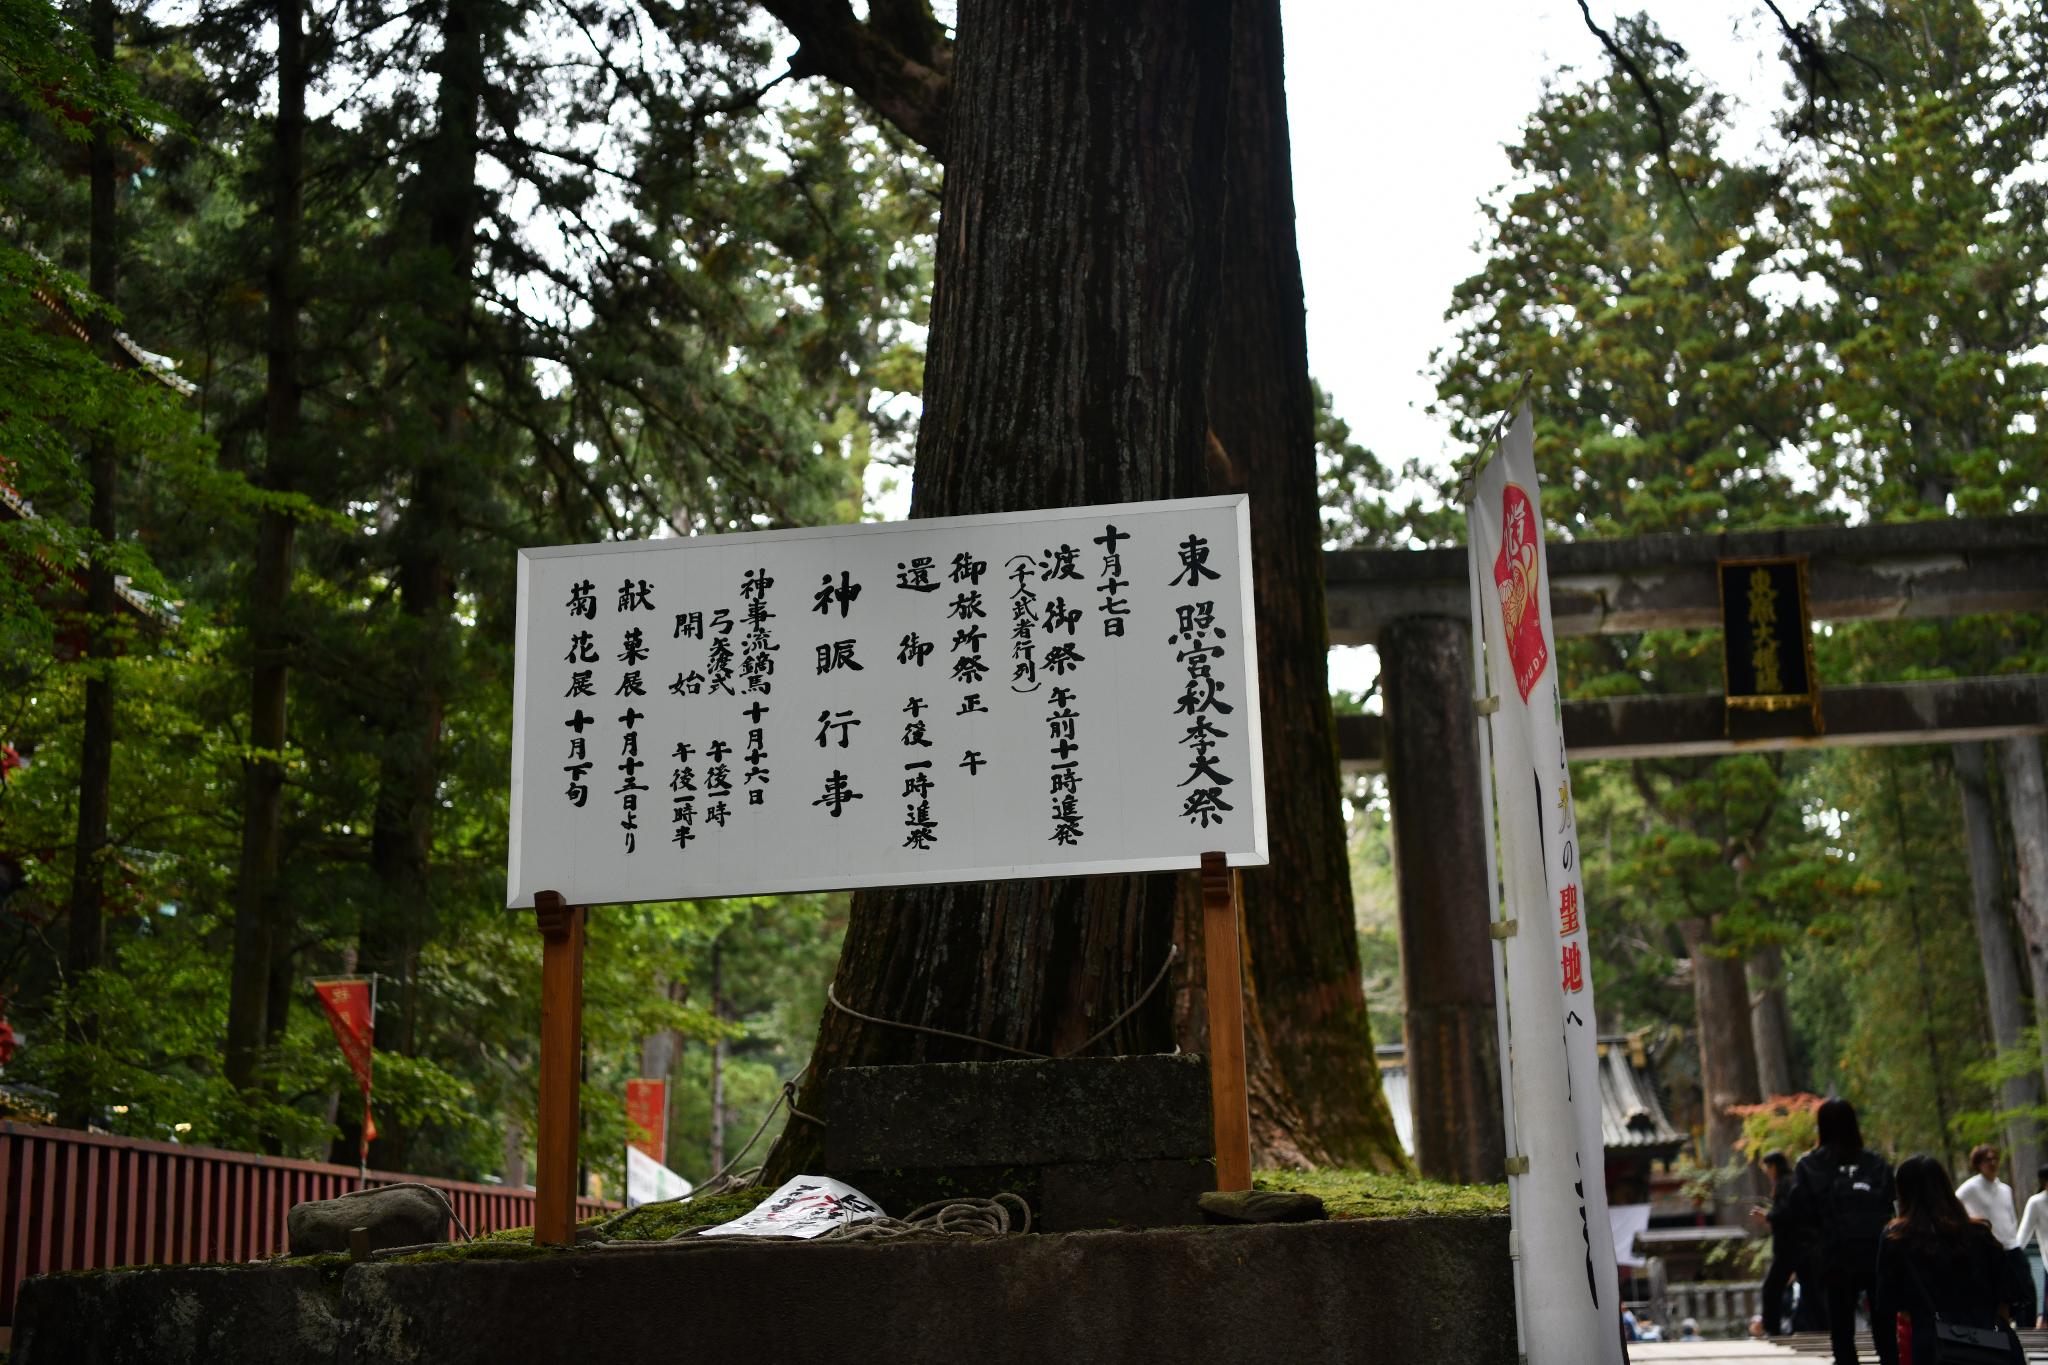 東照宮秋季大祭
十月十七日
渡御祭 午前十一時進発
(千人武者行列)
御旅所祭 正午
還御 午後一時進発
神賑行事
神事流鏑馬 十月十六日
弓矢渡式 午後一時
開始 午後一時半
献菓展 十月十五日より
菊花展 十月下旬
の聖地へ